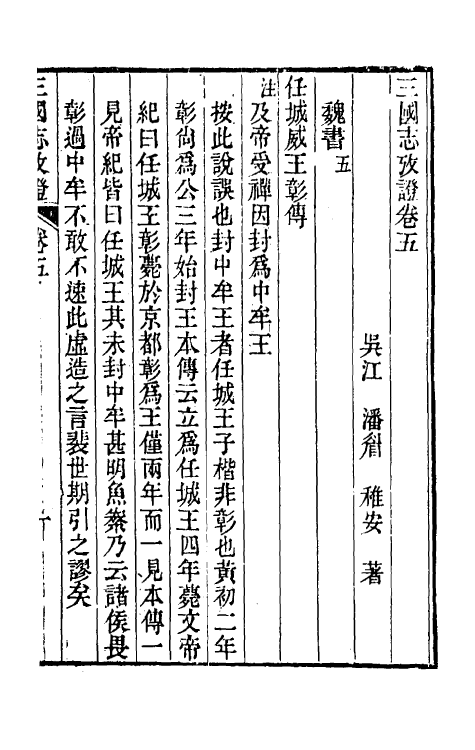 三國志攷證卷五
吳江 潘眉 稚安 著
魏書 五
任城威王彰傳
注及帝受禪因封爲中牟王
按此說誤也封中牟王者任城王子楷非彰也黃初二年
彰尙爲公三年始封王本傳云立爲任城王四年薨文帝
紀曰任城王彰薨於京都彰爲王僅兩年而一見本傳一
見帝紀皆曰任城王其未封中牟甚明魚豢乃云諸侯畏
彰過中牟不敢不速此虛造之言裴世期引之謬矣
三國志攷證 卷五